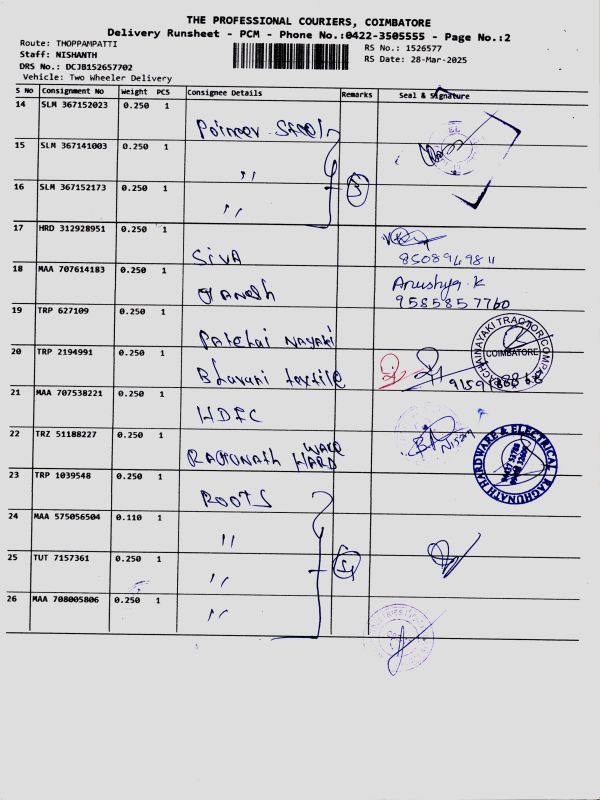 THE PROFESSIONAL COURIERS, COIMBATORE
Delivery Runsheet - PCM - Phone No.:0422-3505555 - Page No.:2
Route: THOPPAMPATTI
RS No.: 1526577
Staff: NISHANTH
RS Date: 28-Mar-2025
DRS No.: DCJB152657702
Vehicle: Two Wheeler Delivery
S No Consignment No Weight PCS Consignee Details Remarks Seal & Signature
14 SLM 367152023 0.250 1
15 SLM 367141003 0.250 1 ,,
16 SLM 367152173 0.250 1 ,, 3
17 HRD 312928951 0.250 1 SIVA 8508949811
18 MAA 707614183 0.250 1 GANESH Anushya.K
9585857760
19 TRP 627109 0.250 1 Patchai NAYAKI COIMBATORE
20 TRP 2194991 0.250 1 Bhavani textile
21 MAA 707538221 0.250 1 HDFC
22 TRZ 51188227 0.250 1 RAGUNATH HARD WARE RAGHUNATH HARDWARE & ELECTRICAL
23 TRP 1039548 0.250 1 ROOTS
24 MAA 575056504 0.110 1 ,,
25 TUT 7157361 0.250 1 ,, 4
26 MAA 708005806 0.250 1 ,,